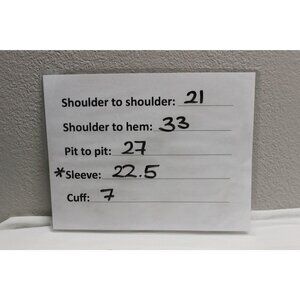 Shoulder to shoulder: 21
Shoulder to hem: 33
Pit to pit: 27
*Sleeve: 22.5
Cuff: 7